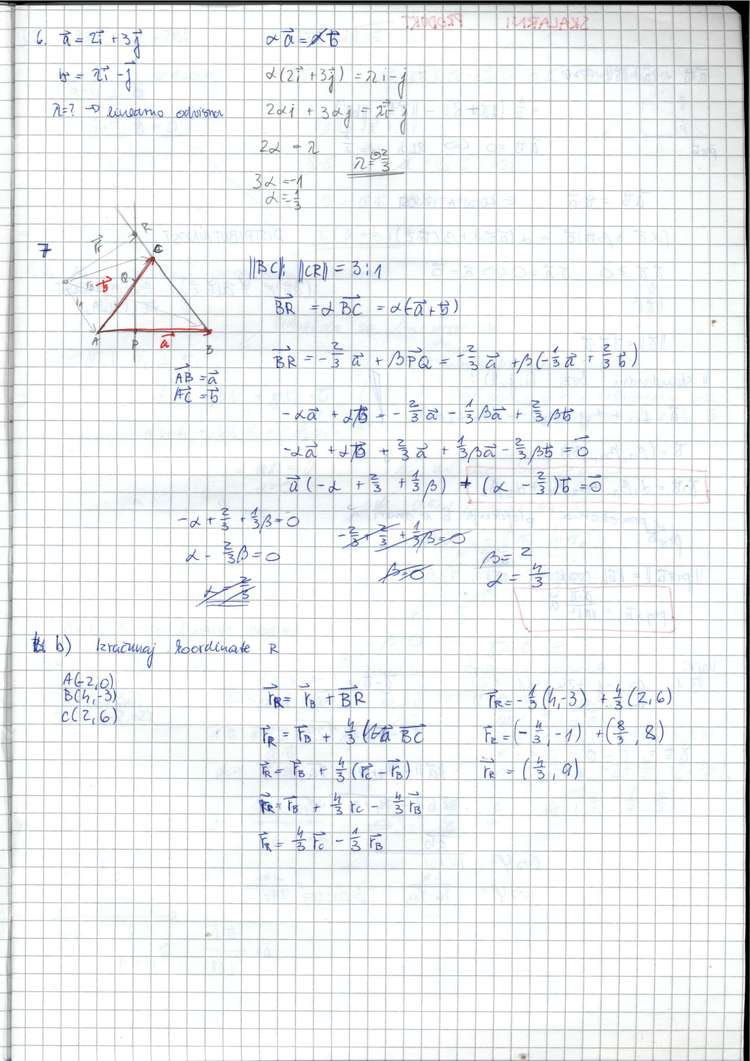 SKALARNI PRODUKT
6. a⃗ = 2i⃗ + 3j⃗
b⃗ = πi⃗ - j⃗
π=? → linearno odvisna
αa⃗ = b⃗
α(2i⃗ + 3j⃗) = πi - j
2αi + 3αj = πi⃗ - j
2α = π
3α = -1
α = -1/3
π = -2/3
7
R
C
Q
A
P
B
a⃗
b⃗
AB⃗ = a⃗
AC⃗ = b⃗
||BC|| : ||CR|| = 3:1
BR⃗ = αBC⃗ = α(-a⃗ + b⃗)
BR⃗ = -2/3 a⃗ + βPQ⃗ = -2/3 a⃗ + β(-1/3 a⃗ + 2/3 b⃗)
-αa⃗ + αb⃗ = -2/3 a⃗ - 1/3 βa⃗ + 2/3 βb⃗
-αa⃗ + αb⃗ + 2/3 a⃗ + 1/3 βa⃗ - 2/3 βb⃗ = 0⃗
a⃗(-α + 2/3 + 1/3 β) + (α - 2/3)b⃗ = 0⃗
-α + 2/3 + 1/3 β = 0
α - 2/3 β = 0
α = 2/3
-2/3 + 2/3 + 1/3 β = 0
β = 0
β = 2
α = 4/3
b) Izračunaj koordinate R
A(-2,0)
B(4,-3)
C(2,6)
r⃗R = r⃗B + BR⃗
r⃗R = r⃗B + 4/3 BC⃗
r⃗R = r⃗B + 4/3 (r⃗C - r⃗B)
r⃗R = r⃗B + 4/3 rC - 4/3 r⃗B
r⃗R = 4/3 r⃗C - 1/3 r⃗B
r⃗R = -1/3 (4,-3) + 4/3 (2,6)
r⃗R = (-4/3, -1) + (8/3, 8)
r⃗R = (4/3, 9)